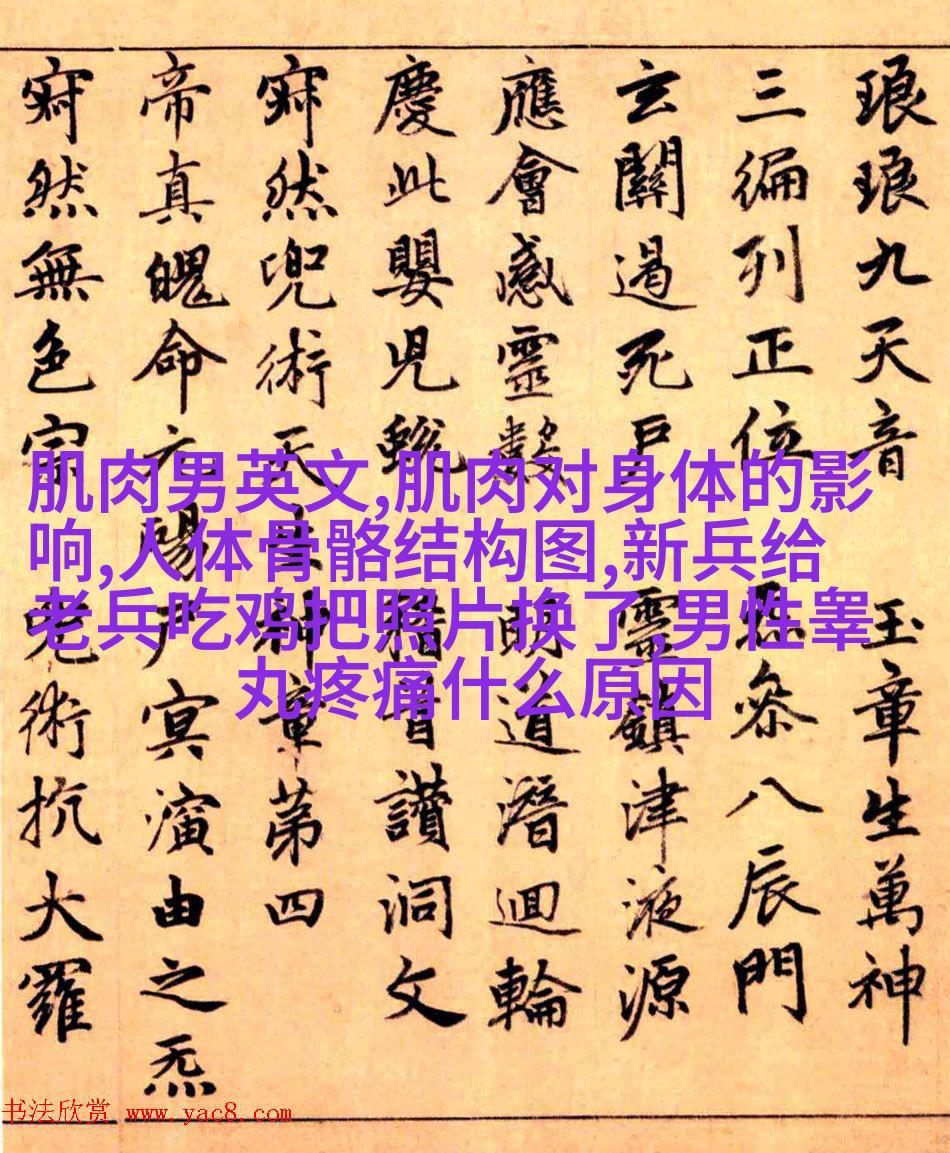 琅琅九天音 玉章生萬神
三編列正位 叅八辰門
玄關遏死戶 靈鎮津液源
應會感靈數 明道潛迴輪
慶此嬰兒蛻 稽首讚洞文
寂然兜術天生神章第四
帝真魄命元陽尸冥演由之炁
寂然無色宗 兜術抗大羅
肌肉男英文,肌肉对身体的影
响,人体骨骼结构图,新兵给
老兵吃鸡把照片换了,男性睾
丸疼痛什么原因
书法欣赏 www.yac8.com